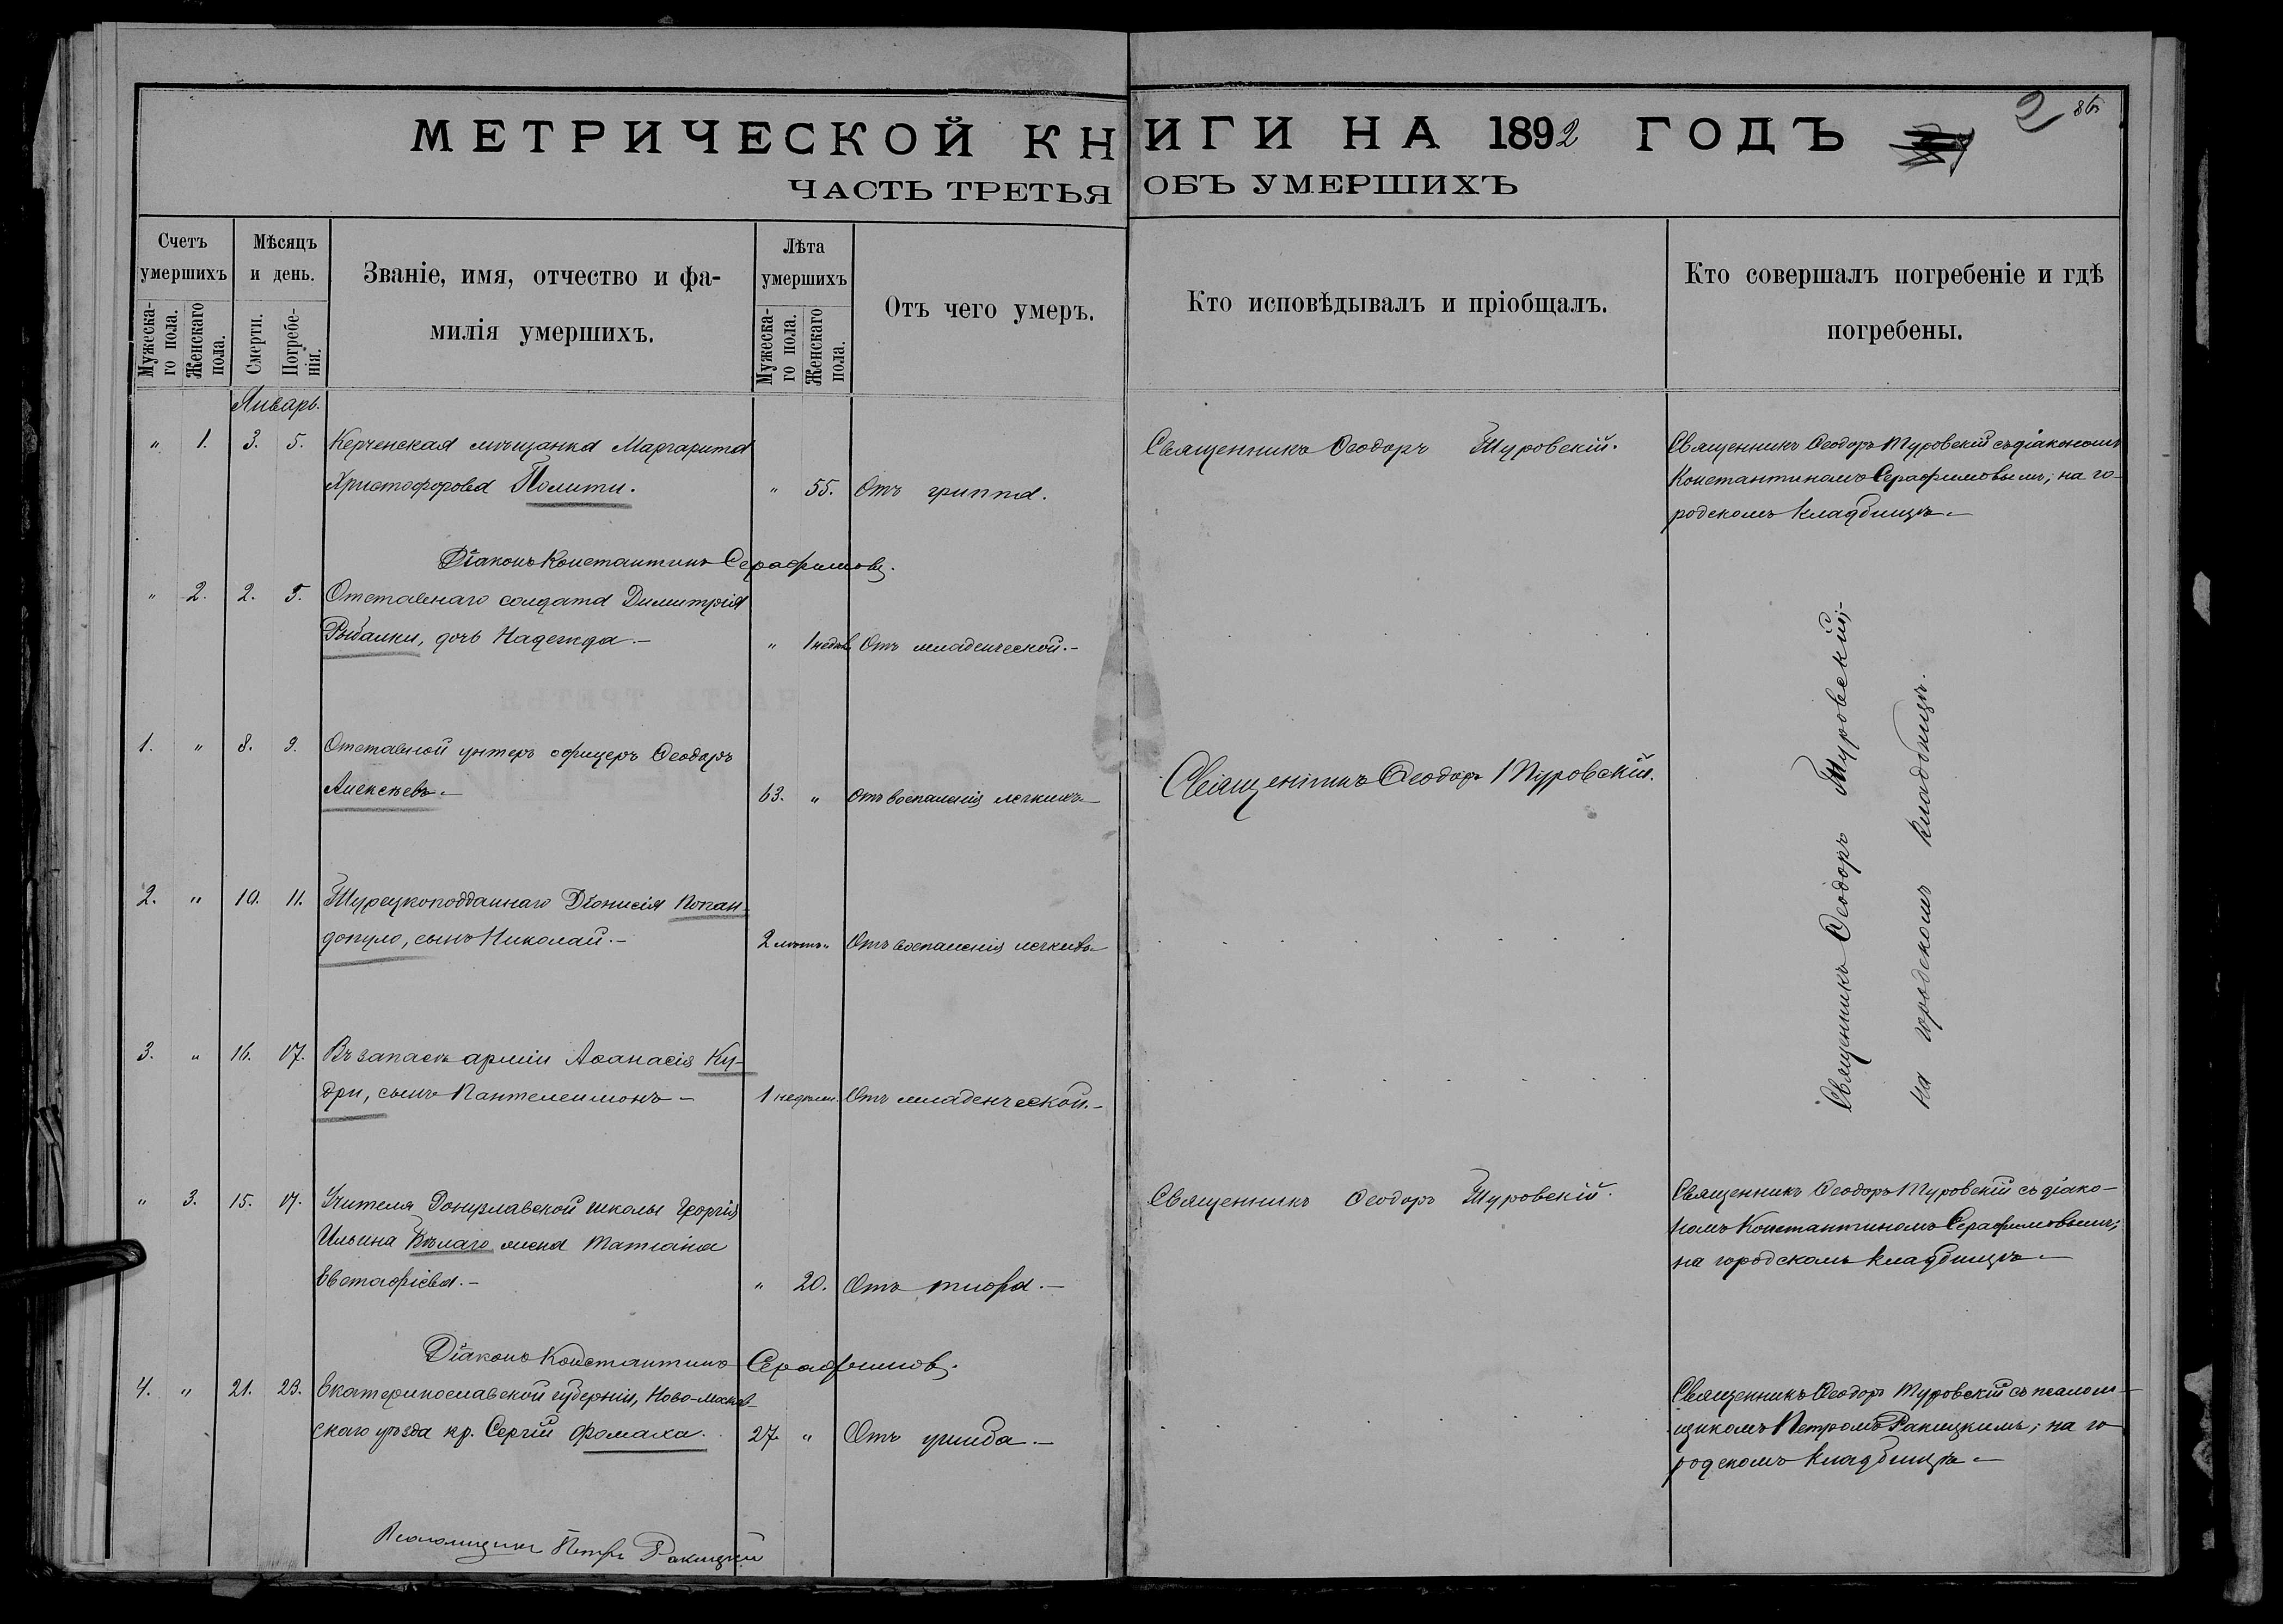 МЕТРИЧЕСКОЙ КНИГИ НА 1892 ГОДЪ
2
ЧАСТЬ ТРЕТЬЯ ОБЪ УМЕРШИХЪ
Счетъ умершихъ
Мужеска-го пола.
Женскаго пола.
Мѣсяцъ и день.
Смерти.
Погребе-нія.
Званіе, имя, отчество и фа-
милія умершихъ.
Лѣта умершихъ
Мужеска-го пола.
Женскаго пола.
Отъ чего умеръ.
Кто исповѣдывалъ и пріобщалъ.
Кто совершалъ погребеніе и гдѣ
погребены.
Январь.
" 1. 3. 5. Керченская мѣщанка Маргарита
Христофорова Полити. " 55. Отъ гриппа.
Священникъ Ѳеодоръ Туровскій.
Священникъ Ѳеодоръ Туровскій съ діакономъ
Константиномъ Серафимовымъ; на го-
родскомъ кладбищѣ.-
Діаконъ Константинъ Серафимовъ.
" 2. 2. 5. Отставнаго солдата Димитрія
Рыбалки, дочь Надежда.- " 1 недѣл. Отъ младенческой.-
1. " 8. 9. Отставной унтеръ офицеръ Ѳеодоръ
Алексѣевъ.- 63. " Отъ воспаленія легкихъ.-
Священникъ Ѳеодоръ Туровскій.
Священникъ Ѳеодоръ Туровскій;-
на городскомъ кладбищѣ.
2. " 10. 11. Турецкоподданнаго Діонисія Попан-
допуло, сынъ Николай.- 2 лѣтъ " Отъ воспаленія легкихъ.-
3. " 16. 17. Въ запасѣ арміи Аѳанасія Ку-
дри, сынъ Пантелеимонъ - 1 недѣли. Отъ младенческой.-
" 3. 15. 17. Учителя Донузлавской школы Георгія
Ильина Бѣлаго жена Татіана
Евстафіева.- " 20. Отъ тифа.-
Священникъ Ѳеодоръ Туровскій.
Священникъ Ѳеодоръ Туровскій съ діако-
номъ Константиномъ Серафимовымъ;
на городскомъ кладбищѣ.-
Діаконъ Константинъ Серафимовъ.
4. " 21. 23. Екатеринославской губерніи, Ново-Москов-
скаго уѣзда кр. Сергій Фомаха. 27. " Отъ ушиба.-
Священникъ Ѳеодоръ Туровскій съ псалом-
щикомъ Петромъ Ракицкимъ; на го-
родскомъ кладбищѣ.-
Псаломщикъ Петръ Ракицкій